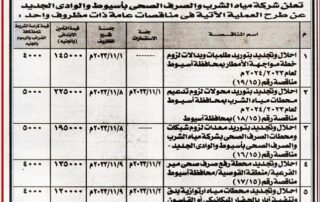 تعلن شركة مياه الشرب والصرف الصحى بأسيوط والوادى الجديد
عن طرح العملية الآتية فى مناقصات عامة ذات مظروف واحد:
م
اسم المناقصة
جلسة الاستفسارات
جلسة
التأمين الابتدائى (بالجنيه)
١
احلال وتجديد بتوريد طلمبات وبدالات لزوم
خطة مواجهة الأمطار بمحافظة أسيوط
لعام ٢٠٢٤/٢٠٢٣م
مناقصة رقم (١٩/١٥)
١٤٥٠٠٠
٤٠٠٠
٢
احلال وتجديد بتوريد محولات لزوم تدعيم
محطات مياه الشرب بمحافظة أسيوط
مناقصة رقم (١٨/١٥)
٢٠٢٣/١١/٨م
٢٢٥٠٠٠
٥٠٠٠
٣
احلال وتجديد بتوريد معدات لزوم شبكات
ومحطات الصرف الصحى بشركة مياه الشرب
والصرف الصحى بأسيوط والوادى الجديد
مناقصة رقم (١٧/١٥)
٢٠٢٣/١١/٨م
١٩٥٠٠٠
٥٠٠٠
٤
احلال وتجديد محطة رفع صرف صحى مير
الفرعية / القوصية / بمحافظة أسيوط
مناقصة رقم (١٦/١٥)
٢٠٢٣/١١/٢م
٢٠٢٣/١١/٩م
١٣٥٠٠٠
٤٠٠٠
٥
احلال وتجديد محطات مياه ارتوازية بدق
وتنفيذ آبار بالحفر الميكانيكى أو القايسون
٢٠٢٣/١١/٢م
٢٠٢٣/١١/٩م
١٢٠٠٠٠
٤٠٠٠